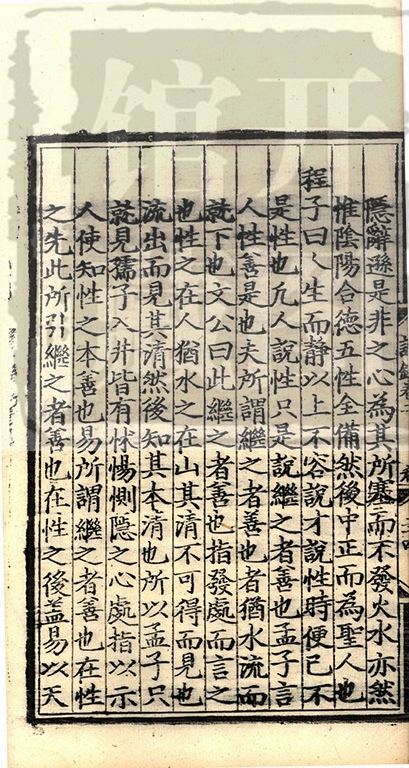 隱辭遜是非之心為其所塞而不發火水亦然
惟陰陽合德五性全備然後中正而為聖人也
程子曰人生而靜以上不容說才說性時便已不
是性也凢人說性只是說繼之者善也孟子言
人性善是也夫所謂繼之者善也者猶水流而
就下也文公曰此繼之者善也指發處而言之
也性之在人猶水之在山其清不可得而見也
流出而見其清然後知其本清也所以孟子只
就見孺子入井皆有怵惕惻隱之心處指以示
人使知性之本善也易所謂繼之者善也在性
之先此所引繼之者善也在性之後盖易以天